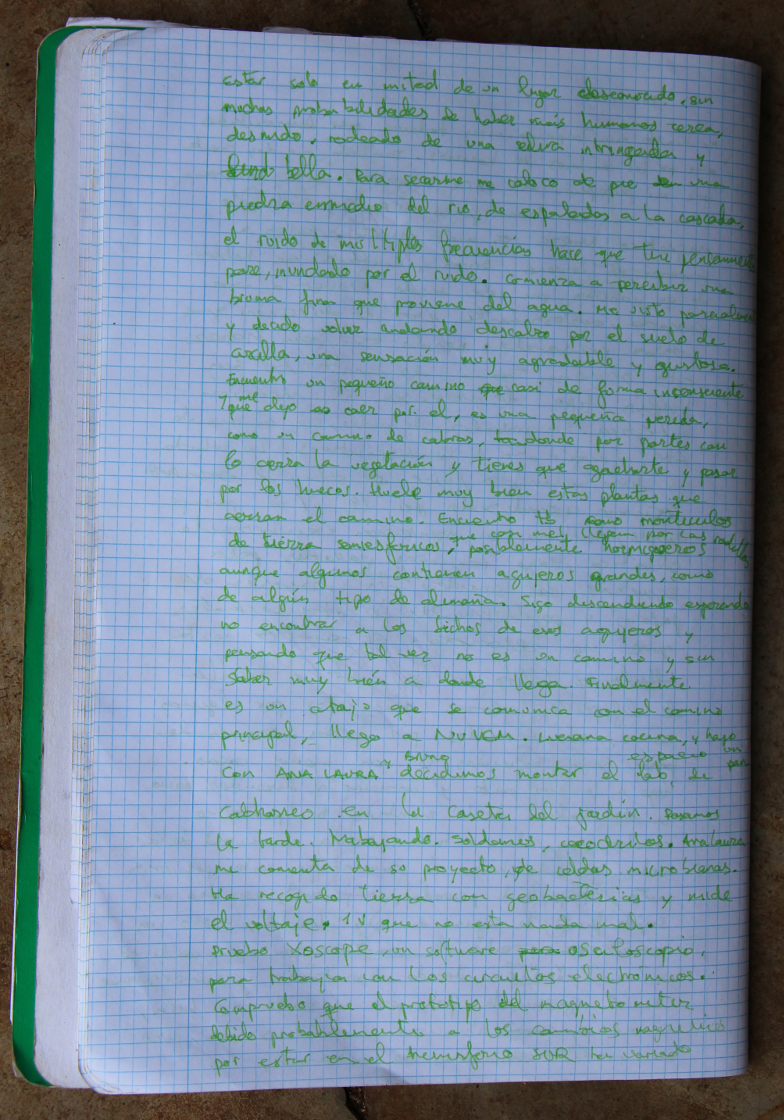 Estar solo en mitad de un lugar desconocido, sin
muchas probabilidades de haber más humanos cerca,
desnudo, rodeado de una selva intrigante y
bella. Para secarme me coloco de pie en una
piedra enmedio del rio, de espaldas a la cascada,
el ruido de múltiples frecuencias hace que tu pensamiento
pare, inundado por el ruido. Comienza a percibir una
bruma fina que proviene del agua. Me visto
y decido volver andando descalzo por el suelo de
arcilla, una sensación muy agradable y gustosa.
Encuentro un pequeño camino que casi de forma inconsciente
me dejo caer por el, es una pequeña vereda,
como un camino de cabras, donde por partes casi
lo cierra la vegetación y tienes que agacharte y pasar
por los huecos. Huele muy bien estas plantas que
cierran el camino. Encuentro tb montículos
que llegan por las rodillas
de tierra semiesféricos, posiblemente hormigueros
aunque algunos contienen agujeros grandes, como
de algún tipo de alimaña. Sigo descendiendo esperando
no encontrar a los bichos de esos agujeros y
pensando que tal vez no es un camino y sin
saber muy bién a donde llega. Finalmente
es un atajo que se comunica con el camino
principal, llego a NUVEM. Luciana cocina, y
Con ANA LAURA y Bruno decidimos montar el lab, de
cacharreo en la caseta del jardín. Pasamos
la tarde trabajando. Soldamos, cocodrilos. Ana Laura
me comenta de su proyecto, de celdas microbianas.
Ha recogido tierra con geobacterias y mide
el voltaje, 1V que no está nada mal.
Pruebo Xoscope, un software osciloscopio,
para trabajar con los circuitos electrónicos.
Compruebo que el prototipo del magnetometer
debido probablemente a los cambios magnetico
por estar en el hemisferio SUR ha variado